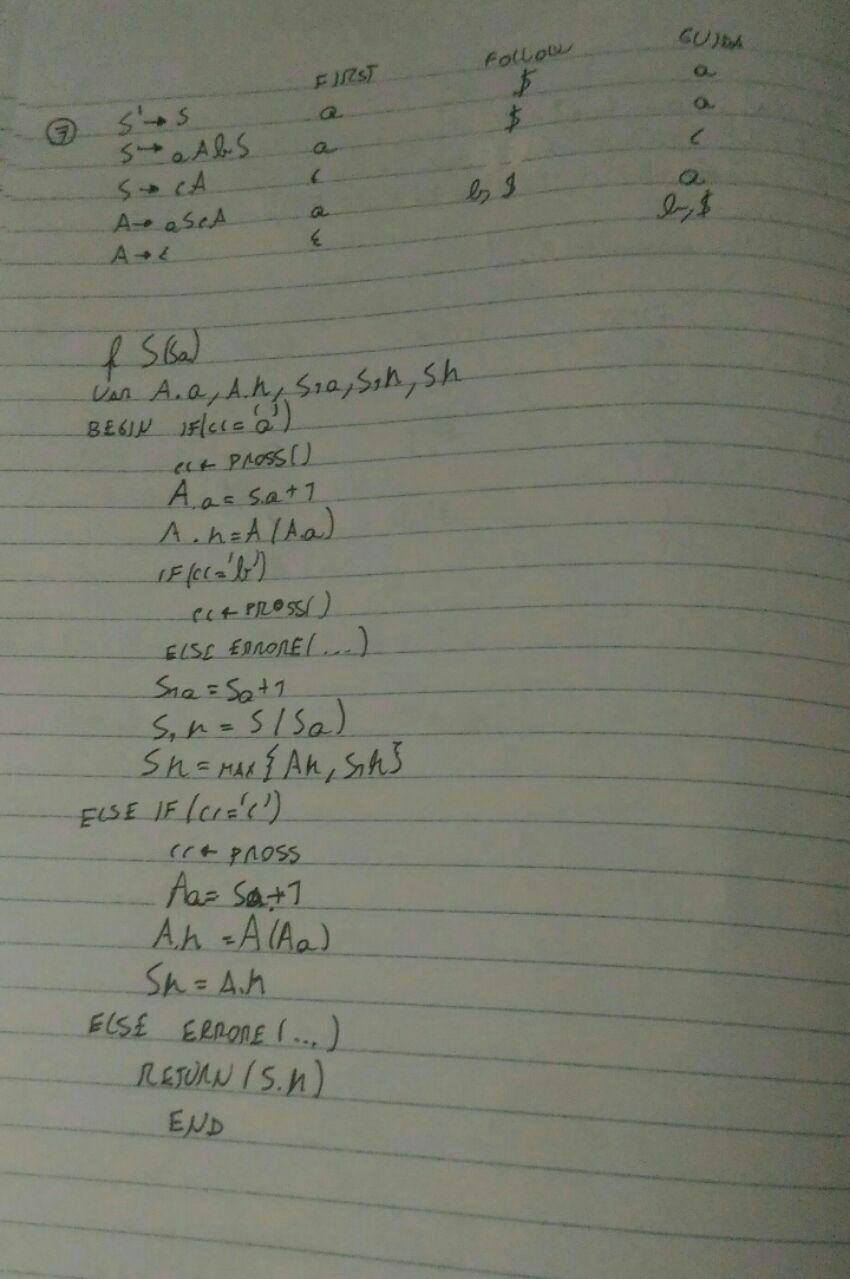 FIRST FOLLOW GUIDA
7 S' → S a $ a
S → aAbS a $ a
S → cA c c
A → aScA a b, $ a
A → ε ε b, $
f S(Sa)
VAR A.a, A.h, S1a, S1h, Sh
BEGIN IF(cc='a')
cc ← PROSS()
A.a = S.a+1
A.h = A(A.a)
IF(cc='b')
cc ← PROSS()
ELSE ERRORE(...)
S1a = Sa+1
S1h = S(Sa)
Sh = MAX{Ah, S1h}
ELSE IF(cc='c')
cc ← PROSS
Aa = Sa+1
A.h = A(Aa)
Sh = A.h
ELSE ERRORE(...)
RETURN(S.h)
END